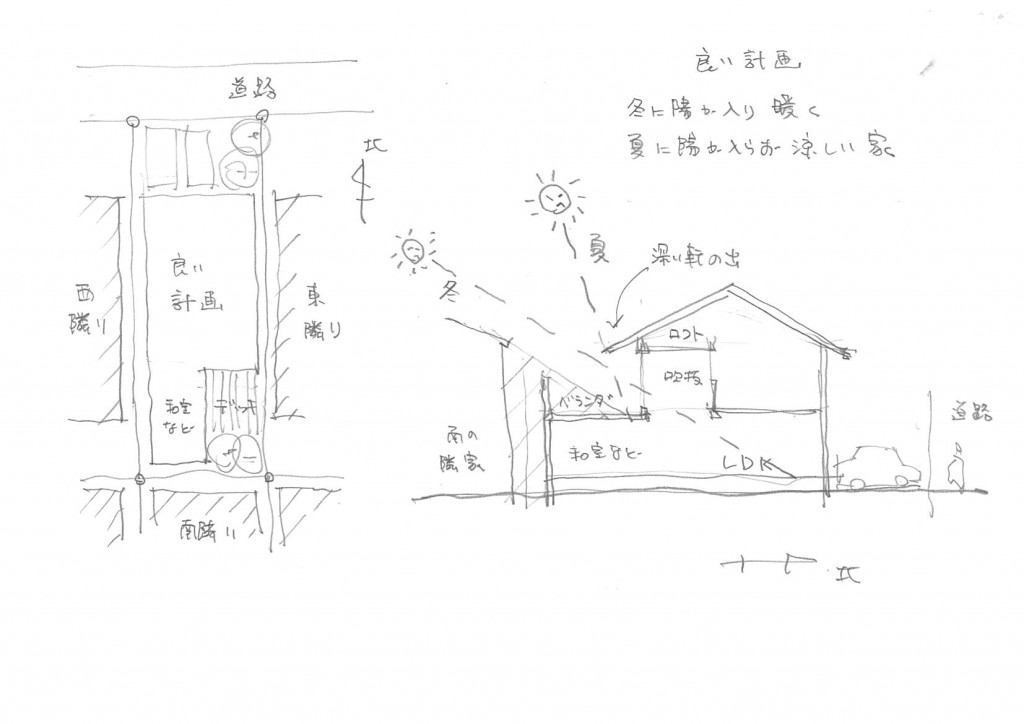 道路
北
良い
計画
西
隣り
東
隣り
和室
など
デッキ
南隣り
良い計画
冬に陽が入り 暖く
夏に陽が入らず 涼しい家
夏
冬
深い軒の出
ロフト
吹抜
ベランダ
南の
隣家
和室など
LDK
道路
北